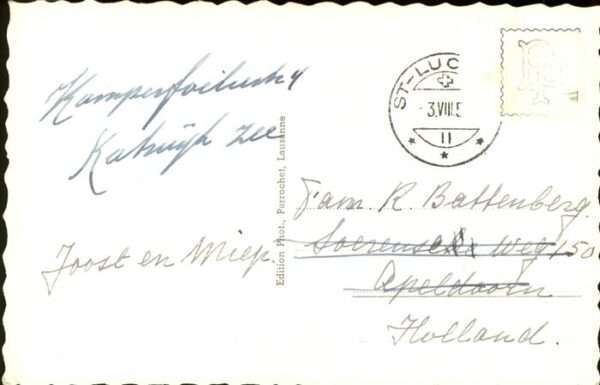 Kamperfoeliestr 4
Katwijk Zee
Joost en Miep.
Edition Phot. Perrochet, Lausanne
ST-LUC
-3.VIII.5
II
Fam. R. Battenberg.
Soerense Weg 150
Apeldoorn
Holland.